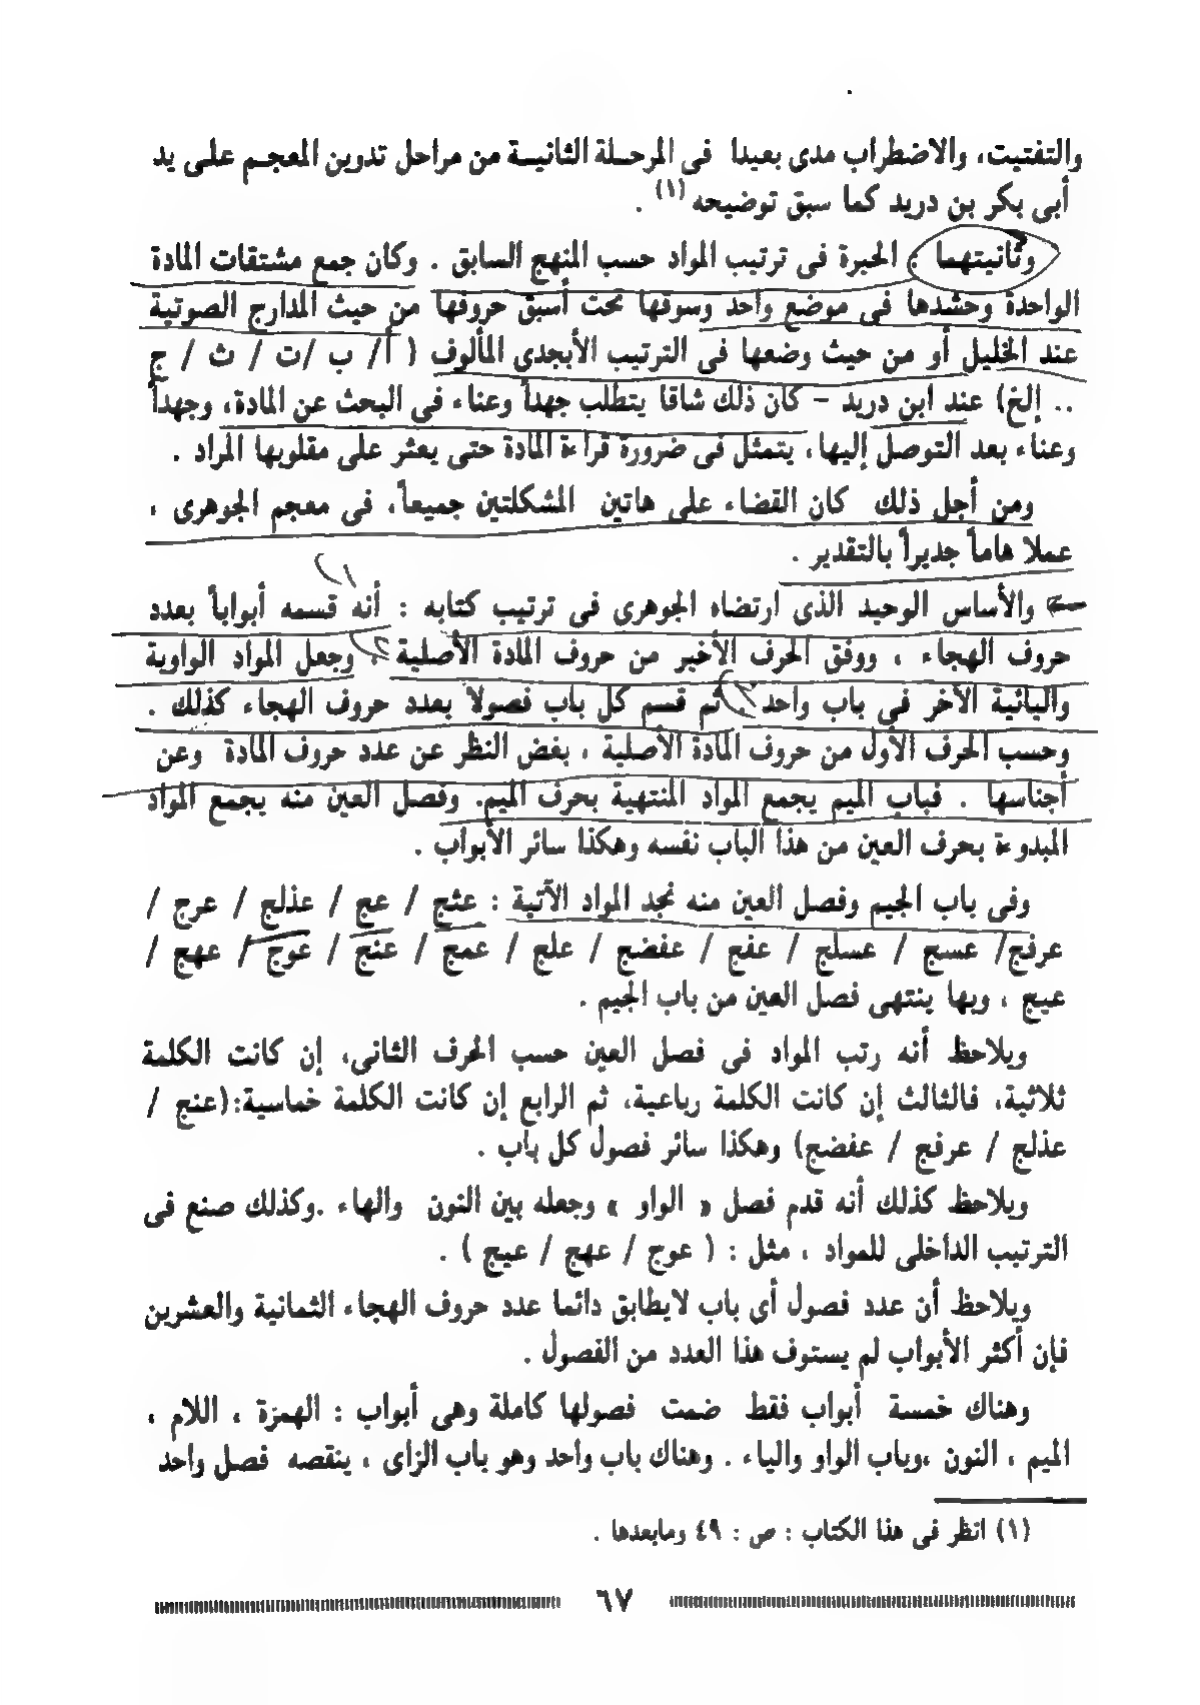 والتفتيت، والاضطراب مدى بعيدا فى المرحلة الثانية من مراحل تدوين المعجم على يد
أبى بكر بن دريد كما سبق توضيحه (١) .
وثانيتهما : الحيرة فى ترتيب المواد حسب المنهج السابق . وكان جمع مشتقات المادة
الواحدة وحشدها فى موضع واحد وسوقها تحت أسبق حروفها من حيث المدارج الصوتية
عند الخليل أو من حيث وضعها فى الترتيب الأبجدى المألوف ( أ/ ب /ت / ث / ج
.. إلخ) عند ابن دريد – كان ذلك شاقا يتطلب جهداً وعناء فى البحث عن المادة، وجهداً
وعناء بعد التوصل إليها، يتمثل فى ضرورة قراءة المادة حتى يعثر على مقلوبها المراد .
ومن أجل ذلك كان القضاء على هاتين المشكلتين جميعاً، فى معجم الجوهرى ،
عملا هاماً جديراً بالتقدير .
والأساس الوحيد الذى ارتضاه الجوهرى فى ترتيب كتابه : أنه قسمه أبواباً بعدد
حروف الهجاء ، ووفق الحرف الأخير من حروف المادة الأصلية ، وجعل المواد الواوية
واليائية الآخر فى باب واحد . ثم قسم كل باب فصولا بعدد حروف الهجاء كذلك .
وحسب الحرف الأول من حروف المادة الأصلية ، بغض النظر عن عدد حروف المادة وعن
أجناسها . فباب الميم يجمع المواد المنتهية بحرف الميم. وفصل العين منه يجمع المواد
المبدوءة بحرف العين من هذا الباب نفسه وهكذا سائر الأبواب .
وفى باب الجيم وفصل العين منه نجد المواد الآتية : عثج / عج / عذلج / عرج /
عرفج/ عسج / عسلج / عفج / عفضج / علج / عمج / عنج / عوج / عهج /
عيج ، وبها ينتهى فصل العين من باب الجيم .
ويلاحظ أنه رتب المواد فى فصل العين حسب الحرف الثانى، إن كانت الكلمة
ثلاثية، فالثالث إن كانت الكلمة رباعية، ثم الرابع إن كانت الكلمة خماسية:(عنج /
عذلج / عرفج / عفضج) وهكذا سائر فصول كل باب .
ويلاحظ كذلك أنه قدم فصل « الواو » وجعله بين النون والهاء .وكذلك صنع فى
الترتيب الداخلى للمواد ، مثل : ( عوج / عهج / عيج ) .
ويلاحظ أن عدد فصول أي باب لايطابق دائما عدد حروف الهجاء الثمانية والعشرين
فإن أكثر الأبواب لم يستوف هذا العدد من الفصول .
وهناك خمسة أبواب فقط ضمت فصولها كاملة وهى أبواب : الهمزة ، اللام ،
الميم ، النون ،وباب الواو والياء . وهناك باب واحد وهو باب الزاى ، ينقصه فصل واحد
(١) انظر فى هذا الكتاب : ص : ٤٩ ومابعدها .
٦٧